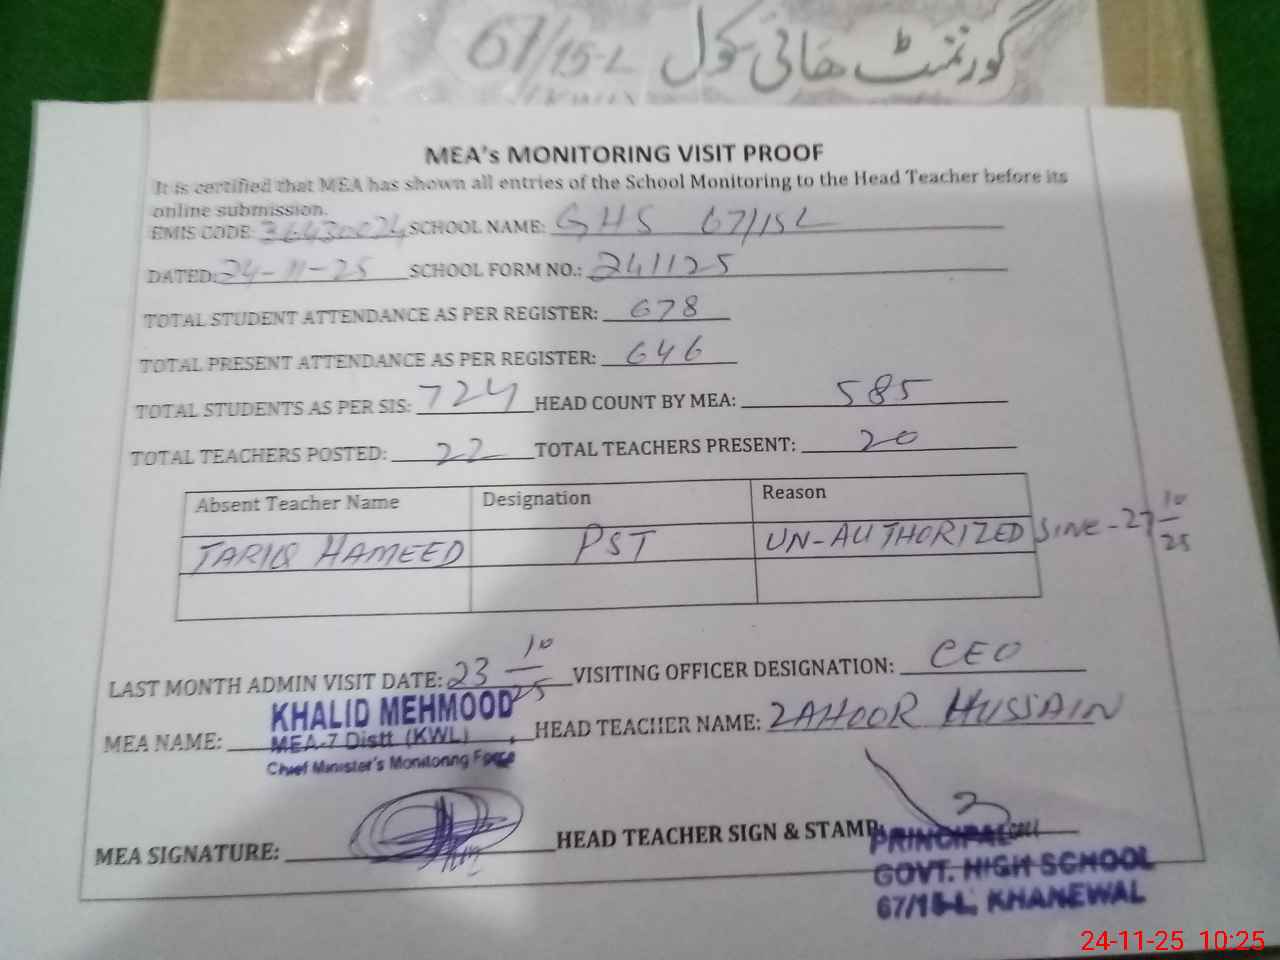 گورنمنٹ ھائی سکول 67/15-L
MEA's MONITORING VISIT PROOF
It is certified that MEA has shown all entries of the School Monitoring to the Head Teacher before its
online submission.
EMIS CODE: 36430024 SCHOOL NAME: GHS 67/15L
DATED: 24-11-25 SCHOOL FORM NO.: 241125
TOTAL STUDENT ATTENDANCE AS PER REGISTER: 678
TOTAL PRESENT ATTENDANCE AS PER REGISTER: 646
TOTAL STUDENTS AS PER SIS: 724 HEAD COUNT BY MEA: 585
TOTAL TEACHERS POSTED: 22 TOTAL TEACHERS PRESENT: 20
Absent Teacher Name Designation Reason
TARIQ HAMEED PST UN-AUTHORIZED SINE-27 10/25
LAST MONTH ADMIN VISIT DATE: 23 10/25 VISITING OFFICER DESIGNATION: CEO
MEA NAME: KHALID MEHMOOD HEAD TEACHER NAME: ZAHOOR HUSSAIN
MEA-7 Distt (KWL)
Chief Minister's Monitoring Force
MEA SIGNATURE: HEAD TEACHER SIGN & STAMP:
PRINCIPAL
GOVT. HIGH SCHOOL
67/15-L, KHANEWAL
24-11-25 10:25